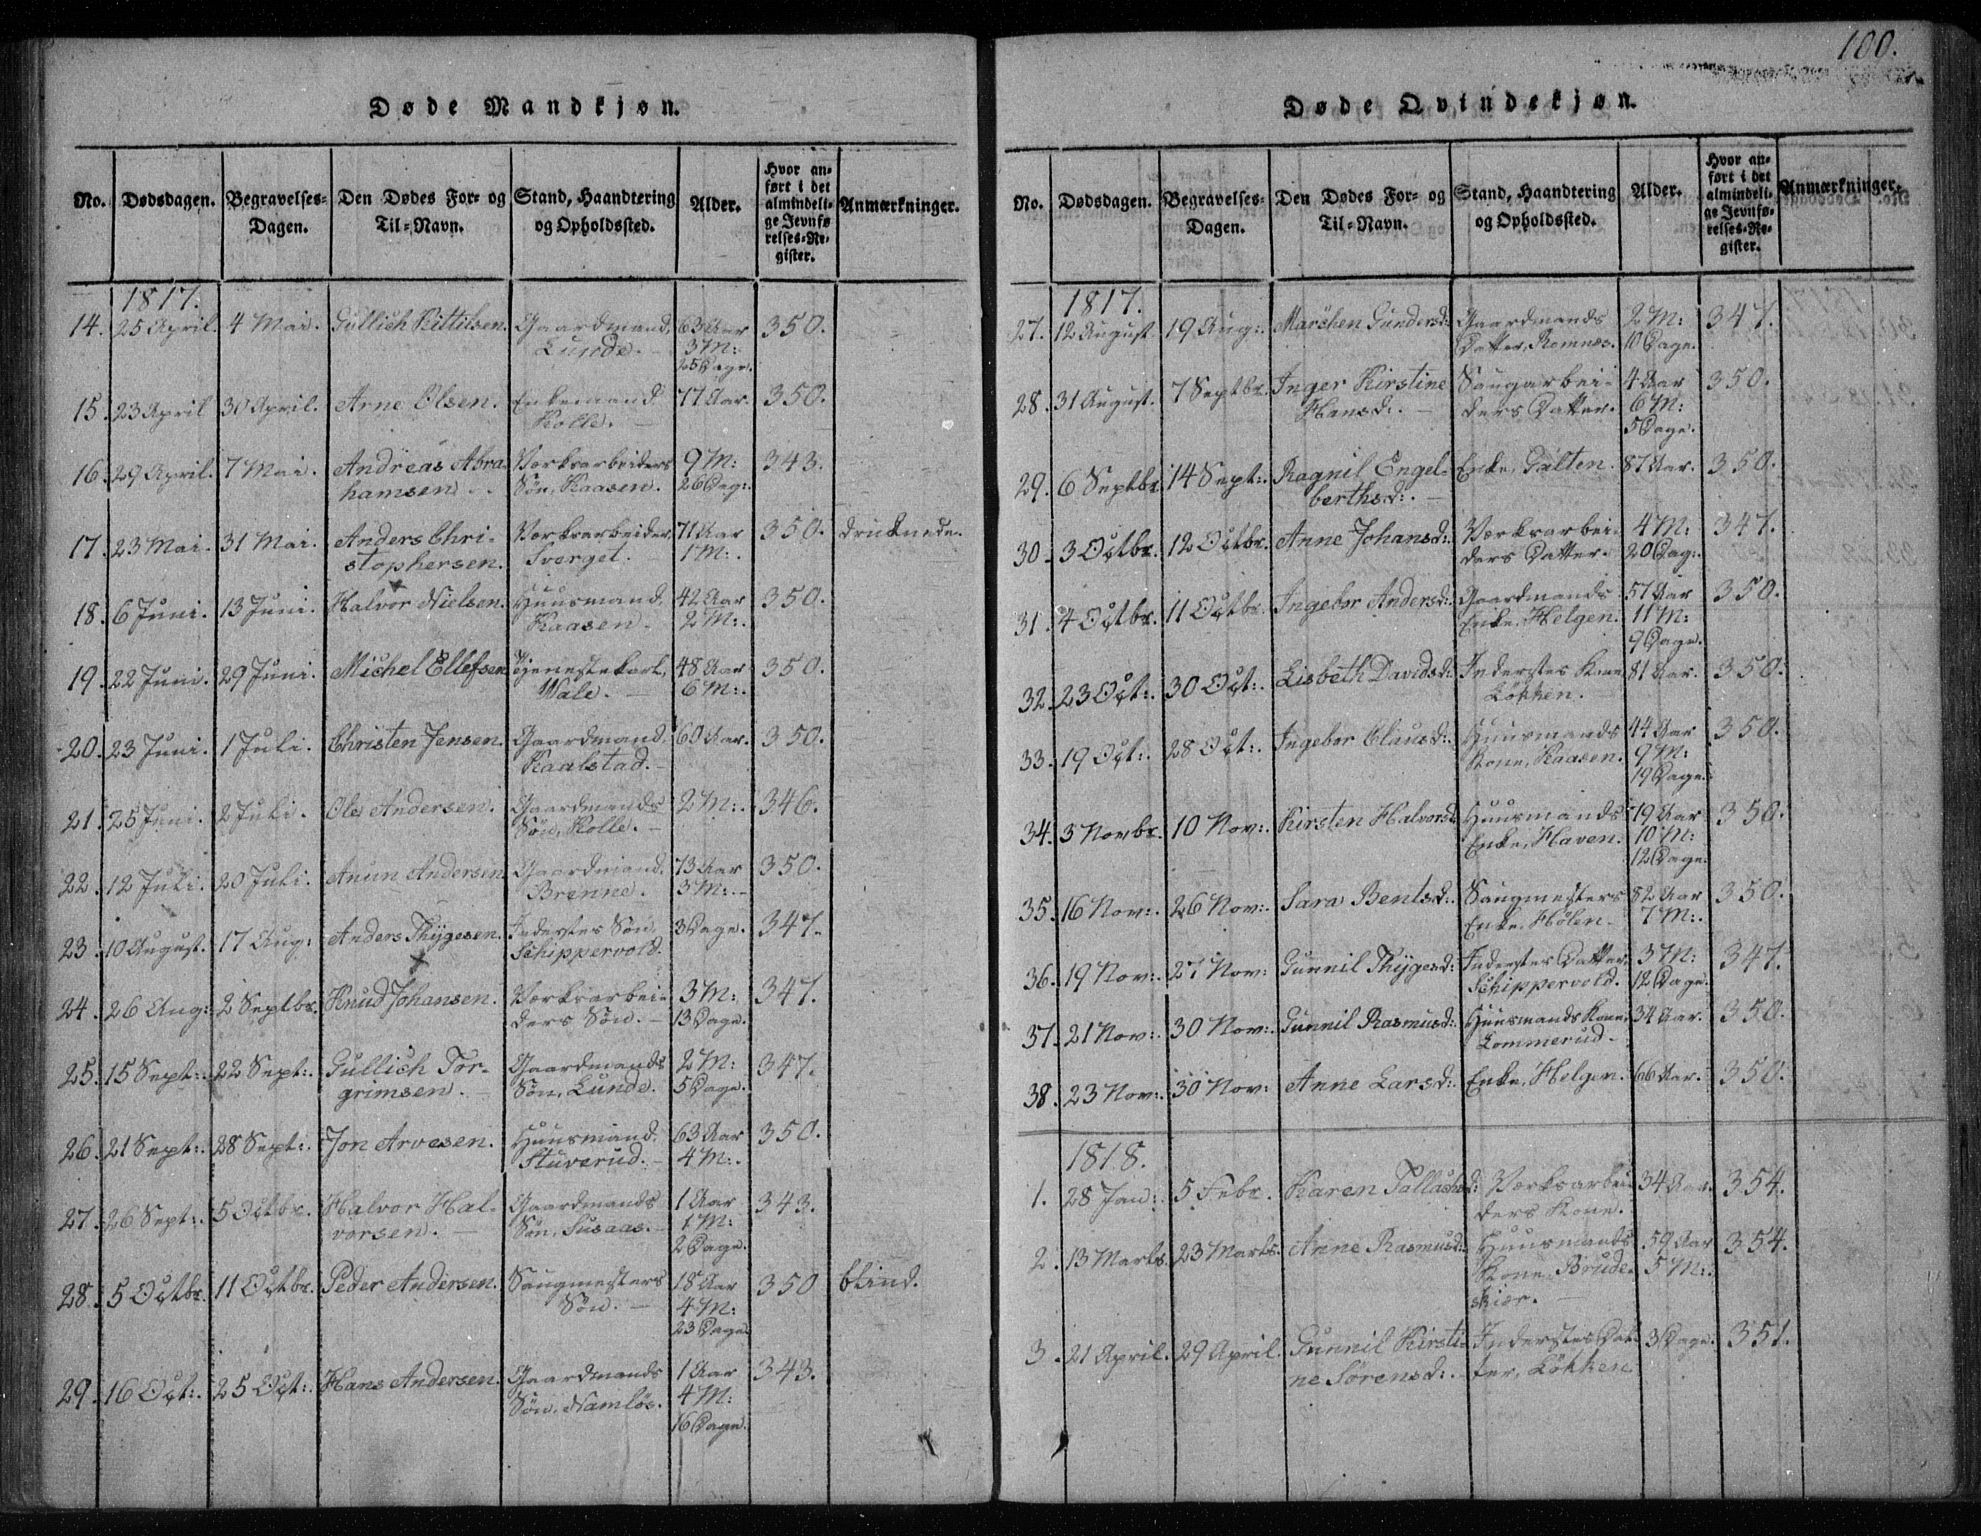 Døde Mandkjøn.
No. Dødsdagen. Begravelses-Dagen. Den Dødes For- og Til-Navn. Stand, Haandtering og Opholdssted. Alder. Hvor anført i det almindelige Jevnførelses-Register. Anmærkninger.
1817.
14. 25 April. 4 Mai. Gullich Kittilsen. Gaardmand, 63 Aar 350.
Lunde. 3 M:
25 Dage.
15. 23 April 30 April. Arne Olsen. Enkemand 77 Aar. 350.
Kolle.
16. 29 April. 7 Mai. Andreas Abra- Værksarbeiders 9 M: 343.
hamsen. Søn, Kaasen. 26 Dag:
17. 23 Mai. 31 Mai. Anders Chri- Værksarbeider 71 Aar 350. druknede.
stophersen. Sverget. 1 M:
18. 6 Juni. 13 Juni. Halvor Nielsen. Huusmand, 42 Aar 350.
Kaasen. 2 M:
19. 22 Juni. 29 Juni. Michel Ellefsen Tjenestekarl, 48 Aar 350.
Wale. 6 M:
20. 23 Juni. 1 Juli. Christen Jensen. Gaardmand, 60 Aar. 350.
Kaalstad.
21. 25 Juni. 2 Juli. Ole Andersen. Gaardmands 2 M: 346.
Søn, Kolle.
22. 12 Juli. 20 Juli. Anun Andersen Gaardmand, 73 Aar 350.
Brenne. 3 M:
23. 10 August. 17 Aug: Anders Thygesen. Inderstes Søn, 3 Dage. 347.
Schippervold.
24. 26 Aug: 2 Septbr. Knud Johansen. Værksarbei- 3 M: 347.
ders Søn. 13 Dage.
25. 15 Sept: 22 Sept: Gullich Tor- Gaardmands 2 M: 347.
grimsen. Søn, Lunde. 5 Dage.
26. 21 Sept: 28 Sept: Jon Arvesen. Huusmand, 63 Aar 350.
Stuverud. 4 M:
27. 26 Sept: 5 Octbr. Halvor Hal- Gaardmands 1 Aar 343.
vorsen. Søn, Susaas. 1 M:
2 Dage.
28. 5 Octbr. 11 Octbr. Peder Andersen. Saugmesters 18 Aar 350 blind.
Søn. 4 M:
23 Dage.
29. 16 Oct: 25 Oct: Hans Andersen. Gaardmands 1 Aar 343.
Søn, Namløs. 4 M:
16 Dage.
100.
Døde Qvindekjøn.
No. Dødsdagen. Begravelses-Dagen. Den Dødes For- og Til-Navn. Stand, Haandtering og Opholdssted. Alder. Hvor anført i det almindelige Jevnførelses-Register. Anmærkninger.
1817.
27. 12 August. 19 Aug: Marchen Gundersd: Gaardmands 2 M: 347.
Datter, Romnes. 10 Dage.
28. 31 August. 7 Septbr. Inger Kirstine Saugarbei- 4 Aar 350.
Hansd: ders Datter. 6 M:
5 Dage.
29. 6 Septbr. 14 Sept: Ragnil Engel- Enke, Galten. 87 Aar. 350.
berthsd:
30. 3 Octbr. 12 Octbr. Anne Johansd: Værksarbei- 4 M: 347.
ders Datter. 20 Dag:
31. 4 Octbr. 11 Octbr. Ingebor Andersd: Gaardmands 57 Aar 350.
Enke, Helgen. 11 M:
9 Dage.
32. 23 Oct: 30 Oct: Lisbeth Davidsd: Inderstes Kone 81 Aar. 350.
Løkken.
33. 19 Oct: 28 Oct: Ingebor Clausd: Huusmands 44 Aar 350.
Kone, Kaasen. 9 M:
19 Dage.
34. 3 Novbr. 10 Nov: Kirsten Halvorsd: Huusmands 79 Aar 350.
Enke, Haven. 10 M:
12 Dage.
35. 16 Nov: 26 Nov: Sara Bentsd: Saugmesters 82 Aar 350.
Enke, Hølen. 7 M:
36. 19 Nov: 27 Nov: Gunnil Thygesd: Inderstes Datter 3 M: 347.
Schippervold. 12 Dage.
37. 21 Nov: 30 Nov: Gunnil Rasmusd: Huusmands Kone, 34 Aar. 350.
Lommerud.
38. 23 Nov: 30 Nov: Anne Larsd: Enke, Helgen. 66 Aar. 350.
1818.
1. 28 Jan: 5 Febr. Karen Tallachsd: Værksarbei- 34 Aar. 354.
ders Kone.
2. 13 Marts. 23 Marts. Anne Rasmusd: Huusmands 59 Aar 354.
Kone, Brude- 5 M:
skiør.
3. 21 April. 29 April. Gunnil Kirsti- Inderstes Dat- 3 Dage. 351.
ne Sørensd: ter, Løkken